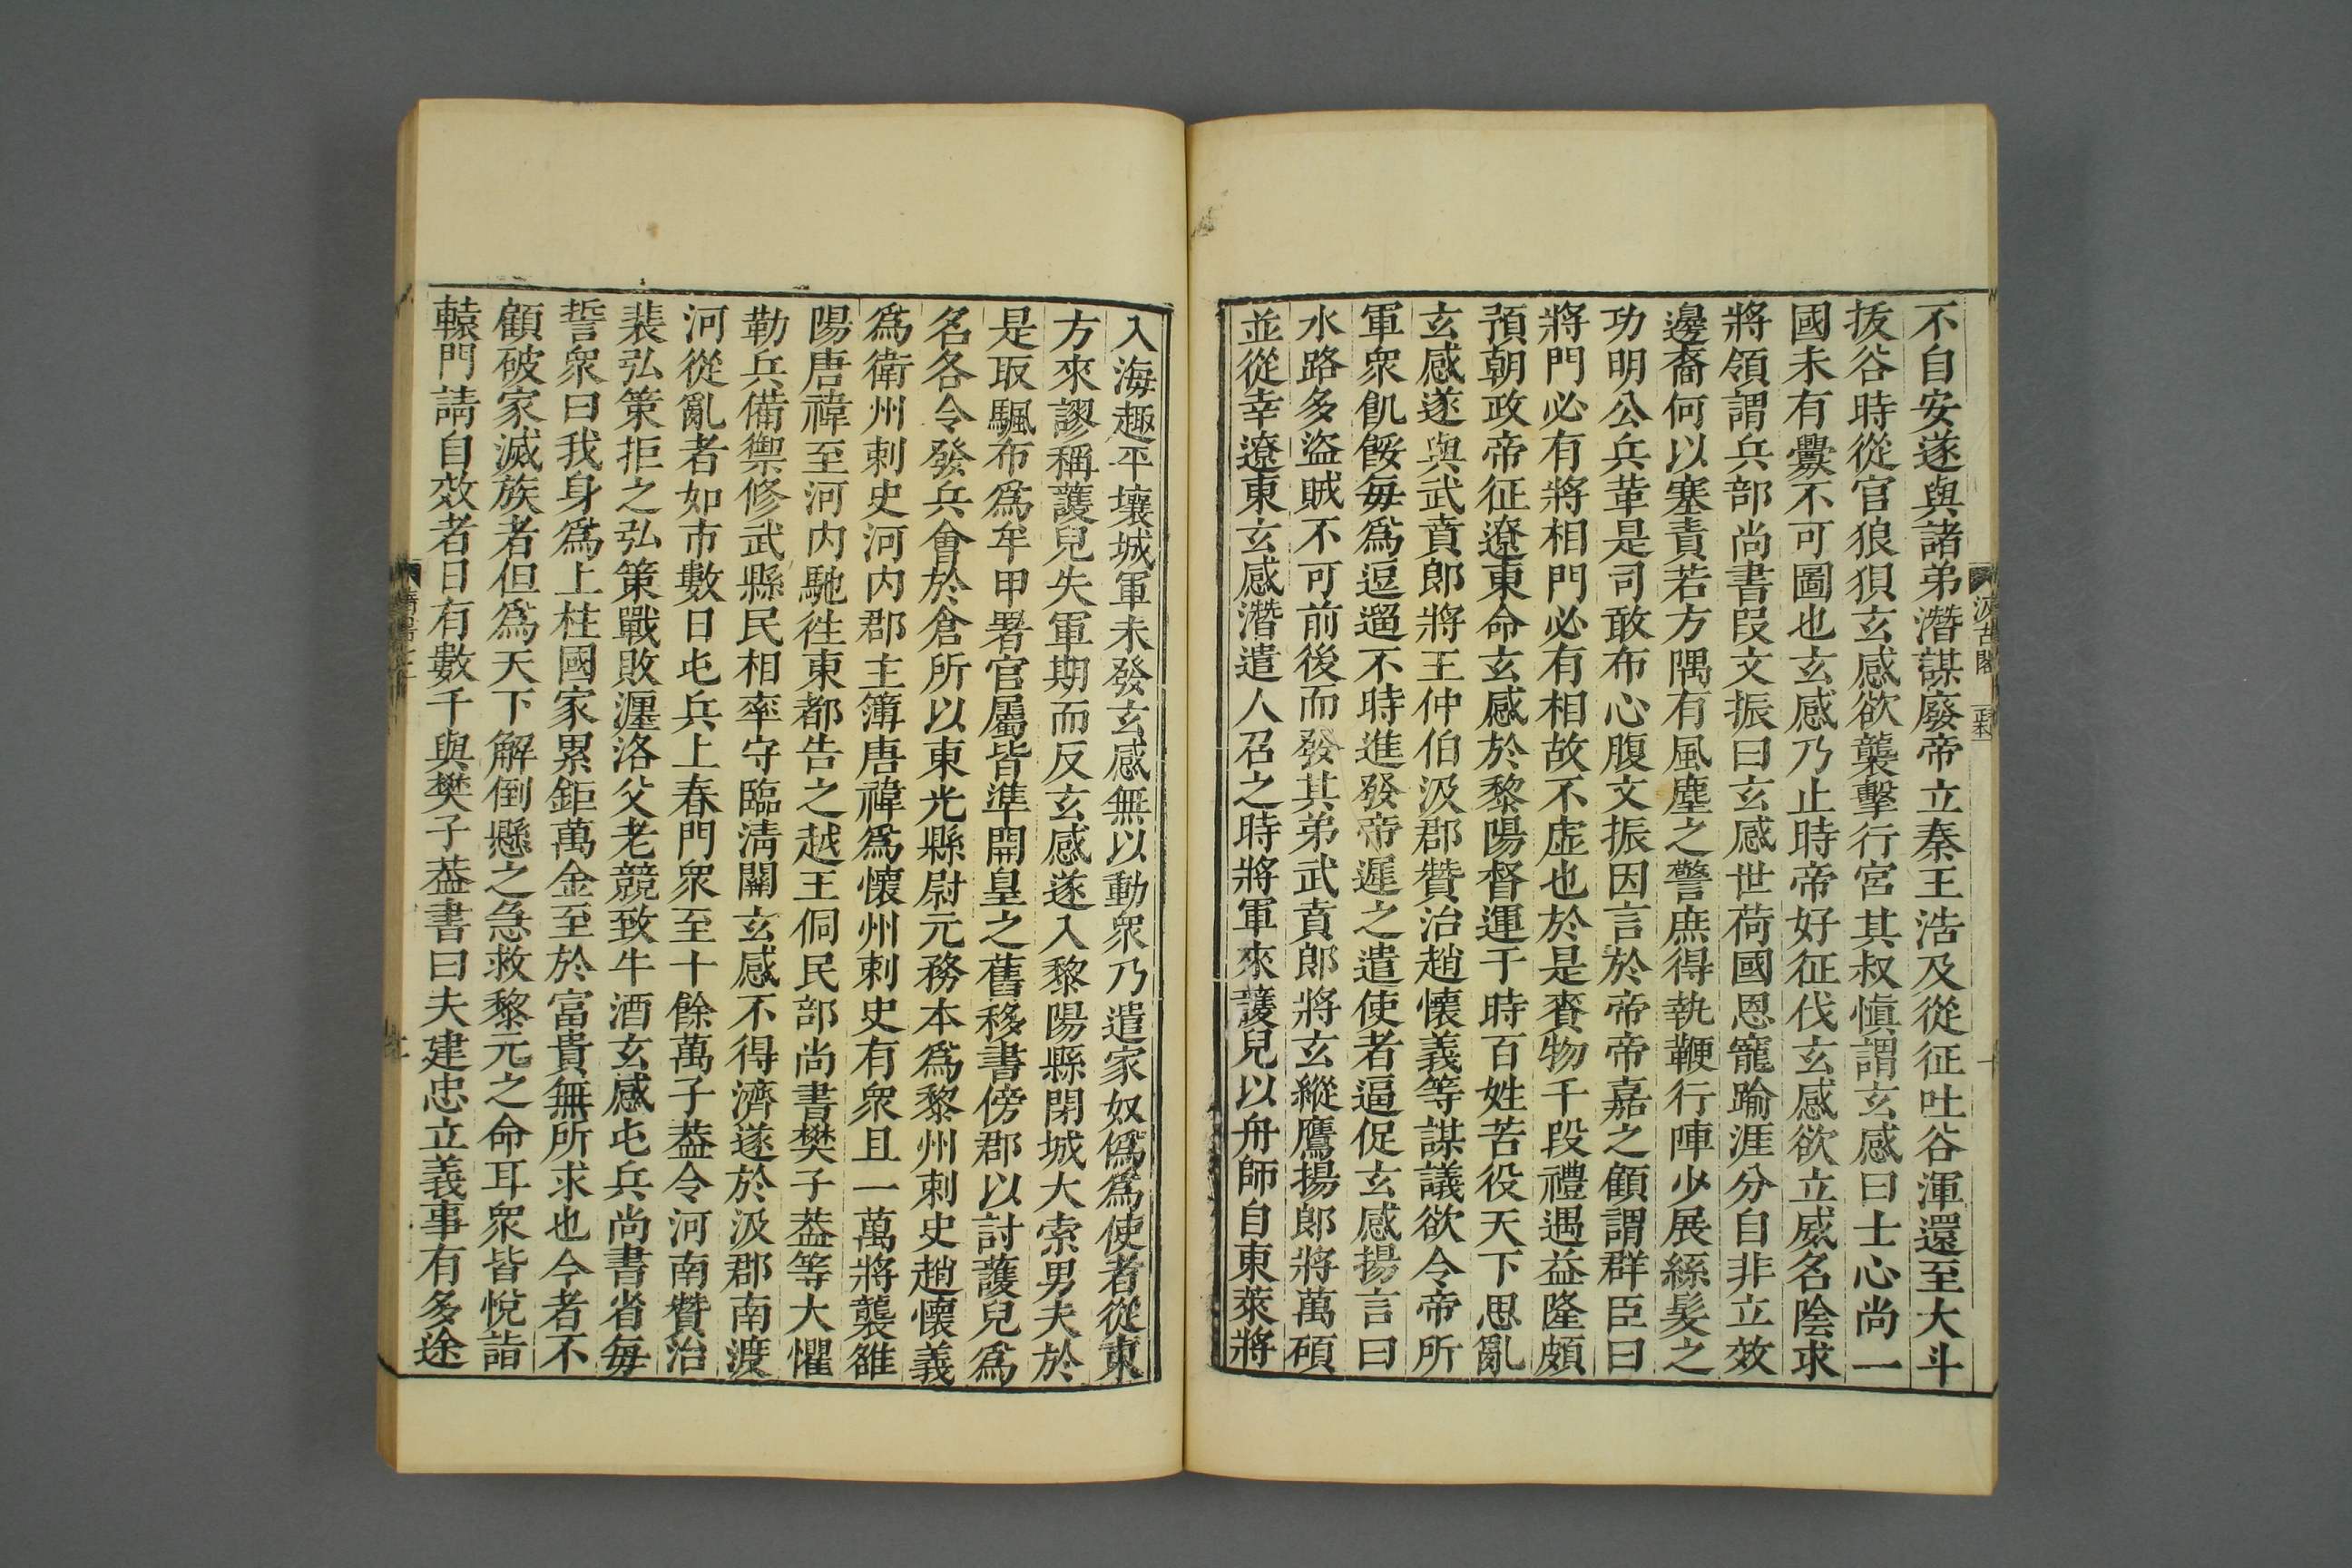 不自安遂與諸弟潛謀廢帝立秦王浩及從征吐谷渾還至大斗
拔谷時從官狼狽玄感欲襲擊行宮其叔愼謂玄感曰士心尚一
國未有釁不可圖也玄感乃止時帝好征伐玄感欲立威名陰求
將領謂兵部尚書段文振曰玄感世荷國恩寵踰涯分自非立效
邊裔何以塞責若方隅有風塵之警庶得執鞭行陣少展絲髮之
功明公兵革是司敢布心腹文振因言於帝帝嘉之顧謂群臣曰
將門必有將相門必有相故不虛也於是賚物千段禮遇益隆頗
預朝政帝征遼東命玄感於黎陽督運于時百姓苦役天下思亂
玄感遂與武賁郎將王仲伯汲郡贊治趙懷義等謀議欲令帝所
軍衆飢餒每爲逗遛不時進發帝遲之遣使者逼促玄感揚言曰
水路多盜賊不可前後而發其弟武賁郎將玄縱鷹揚郎將萬碩
並從幸遼東玄感潛遣人召之時將軍來護兒以舟師自東萊將
入海趣平壤城軍未發玄感無以動衆乃遣家奴僞爲使者從東
方來謬稱護兒失軍期而反玄感遂入黎陽縣閉城大索男夫於
是取颿布爲牟甲署官屬皆準開皇之舊移書傍郡以討護兒爲
名各令發兵會於倉所以東光縣尉元務本爲黎州刺史趙懷義
爲衛州刺史河内郡主簿唐禕爲懷州刺史有衆且一萬將襲雒
陽唐禕至河内馳徃東都告之越王侗民部尚書樊子葢等大懼
勒兵備禦修武縣民相率守臨淸關玄感不得濟遂於汲郡南渡
河從亂者如市數日屯兵上春門衆至十餘萬子葢令河南贊治
裴弘策拒之弘策戰敗瀍洛父老競致牛酒玄感屯兵尚書省每
誓衆曰我身爲上柱國家累鉅萬金至於富貴無所求也今者不
顧破家滅族者但爲天下解倒懸之急救黎元之命耳衆皆悅詣
轅門請自效者日有數千與樊子葢書曰夫建忠立義事有多途
汲古閣